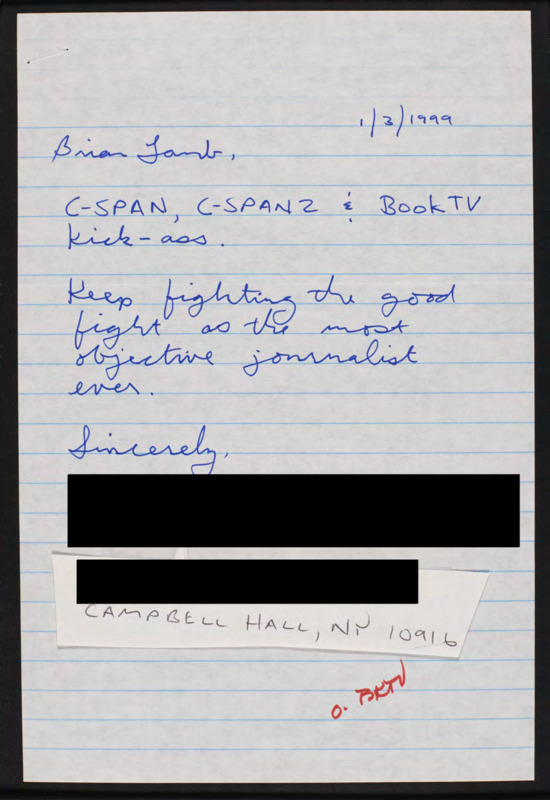 1/3/1999
Brian Lamb,
C-SPAN, C-SPAN2 & BookTV
kick-ass.
Keep fighting the good
fight as the most
objective journalist
ever.
Sincerely,
CAMPBELL HALL, NY 10916
O. BKTV